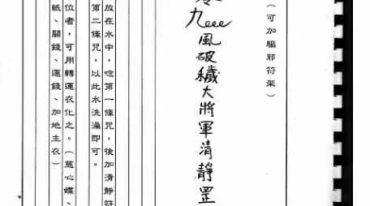 (可加驅邪符架)
九
風破穢大將軍清靜罡
放在水中,唸第一條咒,後加清靜符
第二條咒,以此水洗滿即可。
位者,可用轉運衣化之。(蓮心碟、
紙、關錢、運錢、加地主衣)